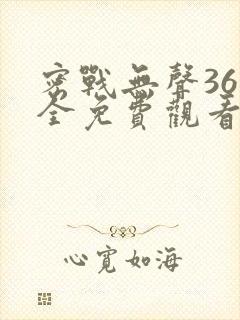 密戰無聲36
全免費觀看
心寬如海